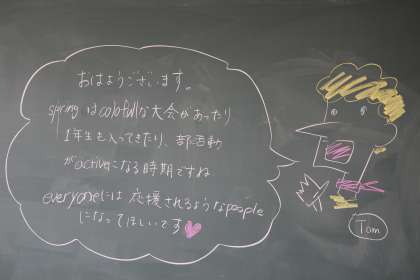 おはようございます。
springはcolorfullな大会があったり
1年生も入ってきたり、部活動
がactiveになる時期ですね
everyoneには応援されるようなpeople
になってほしいです
Tom